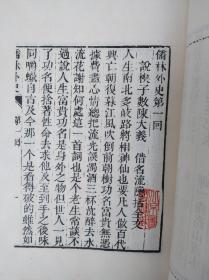 儒林外史第一回
說楔子敷陳大義 借名流隱括全文
人生南北多歧路將相神仙也要凡人做百代
興亡朝復暮江風吹倒前朝樹功名富貴無憑
據費盡心情總把流光誤濁酒三杯沉醉去水
流花謝知何處這一首詞也是個老生常談不
過說人生富貴功名是身外之物但世人一見
了功名便捨著性命去求他及至到手之後味
同嚼蠟自古及今那一個是看得破的雖然如
儒林外史 第一回